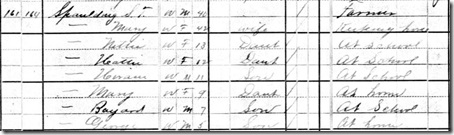 161 164 Spaulding S. T. W M 46 / Farmer
— Mary W F 42 Wife / Keeping house
— Nellie W F 13 Daut / At School
— Hattie W F 12 Daut / At School
— Hiram W M 11 Son / At School
— Mary W F 9 Daut / At home
— Bayard W M 7 Son / At School
— George W M 5 Son / At home